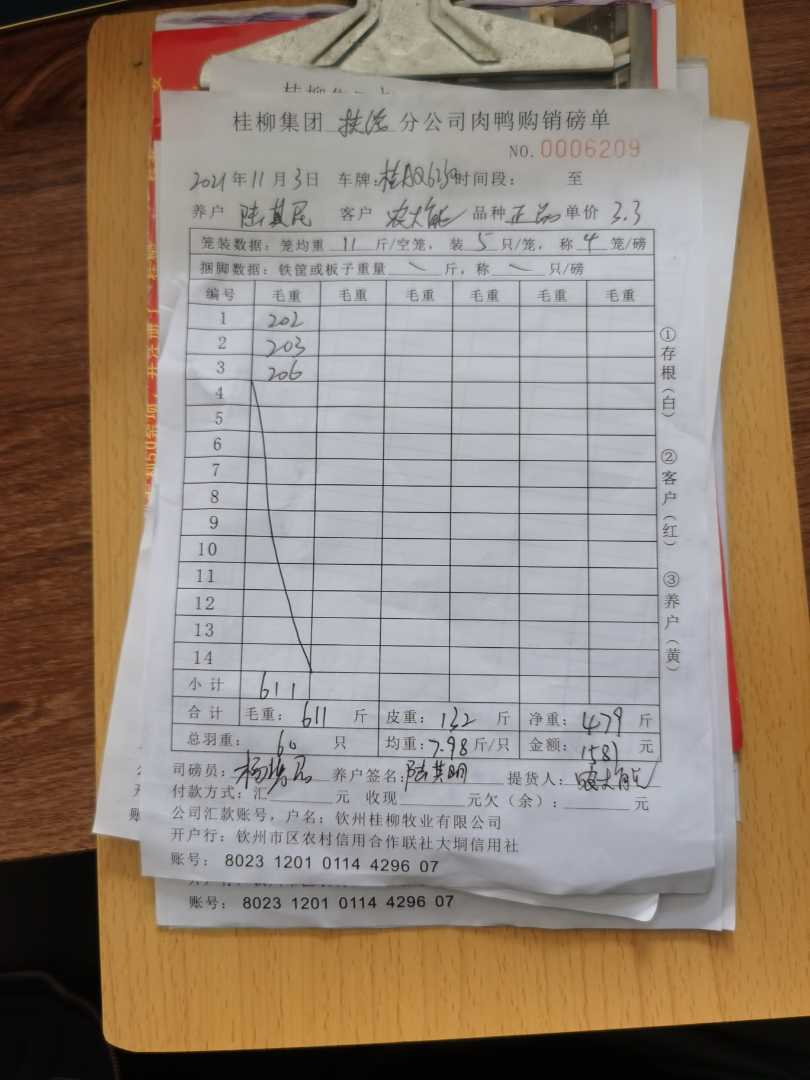 桂柳集团 扶绥 分公司肉鸭购销磅单
NO. 0006209
2021年11月3日 车牌: 时间段: 至
养户 陆其民 客户 农大能 品种 正品 单价 3.3
笼装数据: 笼均重 11 斤/空笼, 装 5 只/笼, 称 4 笼/磅
捆脚数据: 铁筐或板子重量 \ 斤, 称 \ 只/磅
编号 毛重 毛重 毛重 毛重 毛重 毛重
1 202
2 203
3 206
4
5
6
7
8
9
10
11
12
13
14
小计 611
合计 毛重: 611 斤 皮重: 132 斤 净重: 479 斤
总羽重: 60 只 均重: 7.98 斤/只 金额: 1581 元
司磅员: 养户签名: 陆其明 提货人: 农大能
付款方式: 汇 元 收现 元欠(余): 元
公司汇款账号, 户名: 钦州桂柳牧业有限公司
开户行: 钦州市区农村信用合作联社大垌信用社
账号: 8023 1201 0114 4296 07
账号: 8023 1201 0114 4296 07
①存根(白)
②客户(红)
③养户(黄)